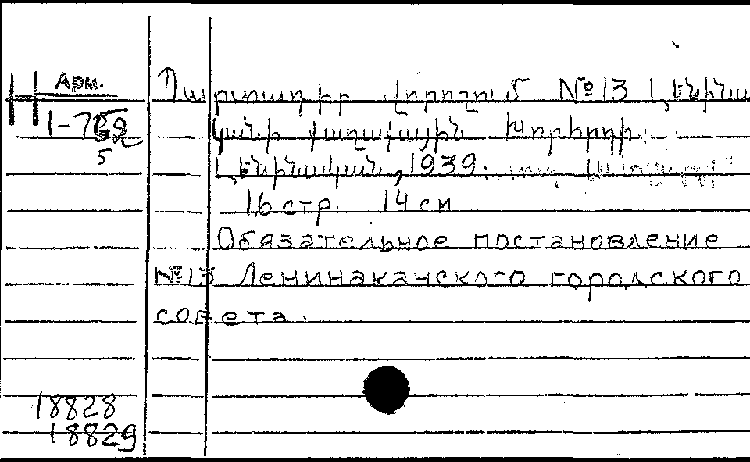 Арм.
Н
1-762
5
Պարտադիր վորոշում №13 Լենինա
կանի քաղաքային խորհրդի.
Լենինական, 1939. տպ.
16 стр. 14 см
Обязательное постановление
№13 Ленинаканского городского
совета.
18828
18829